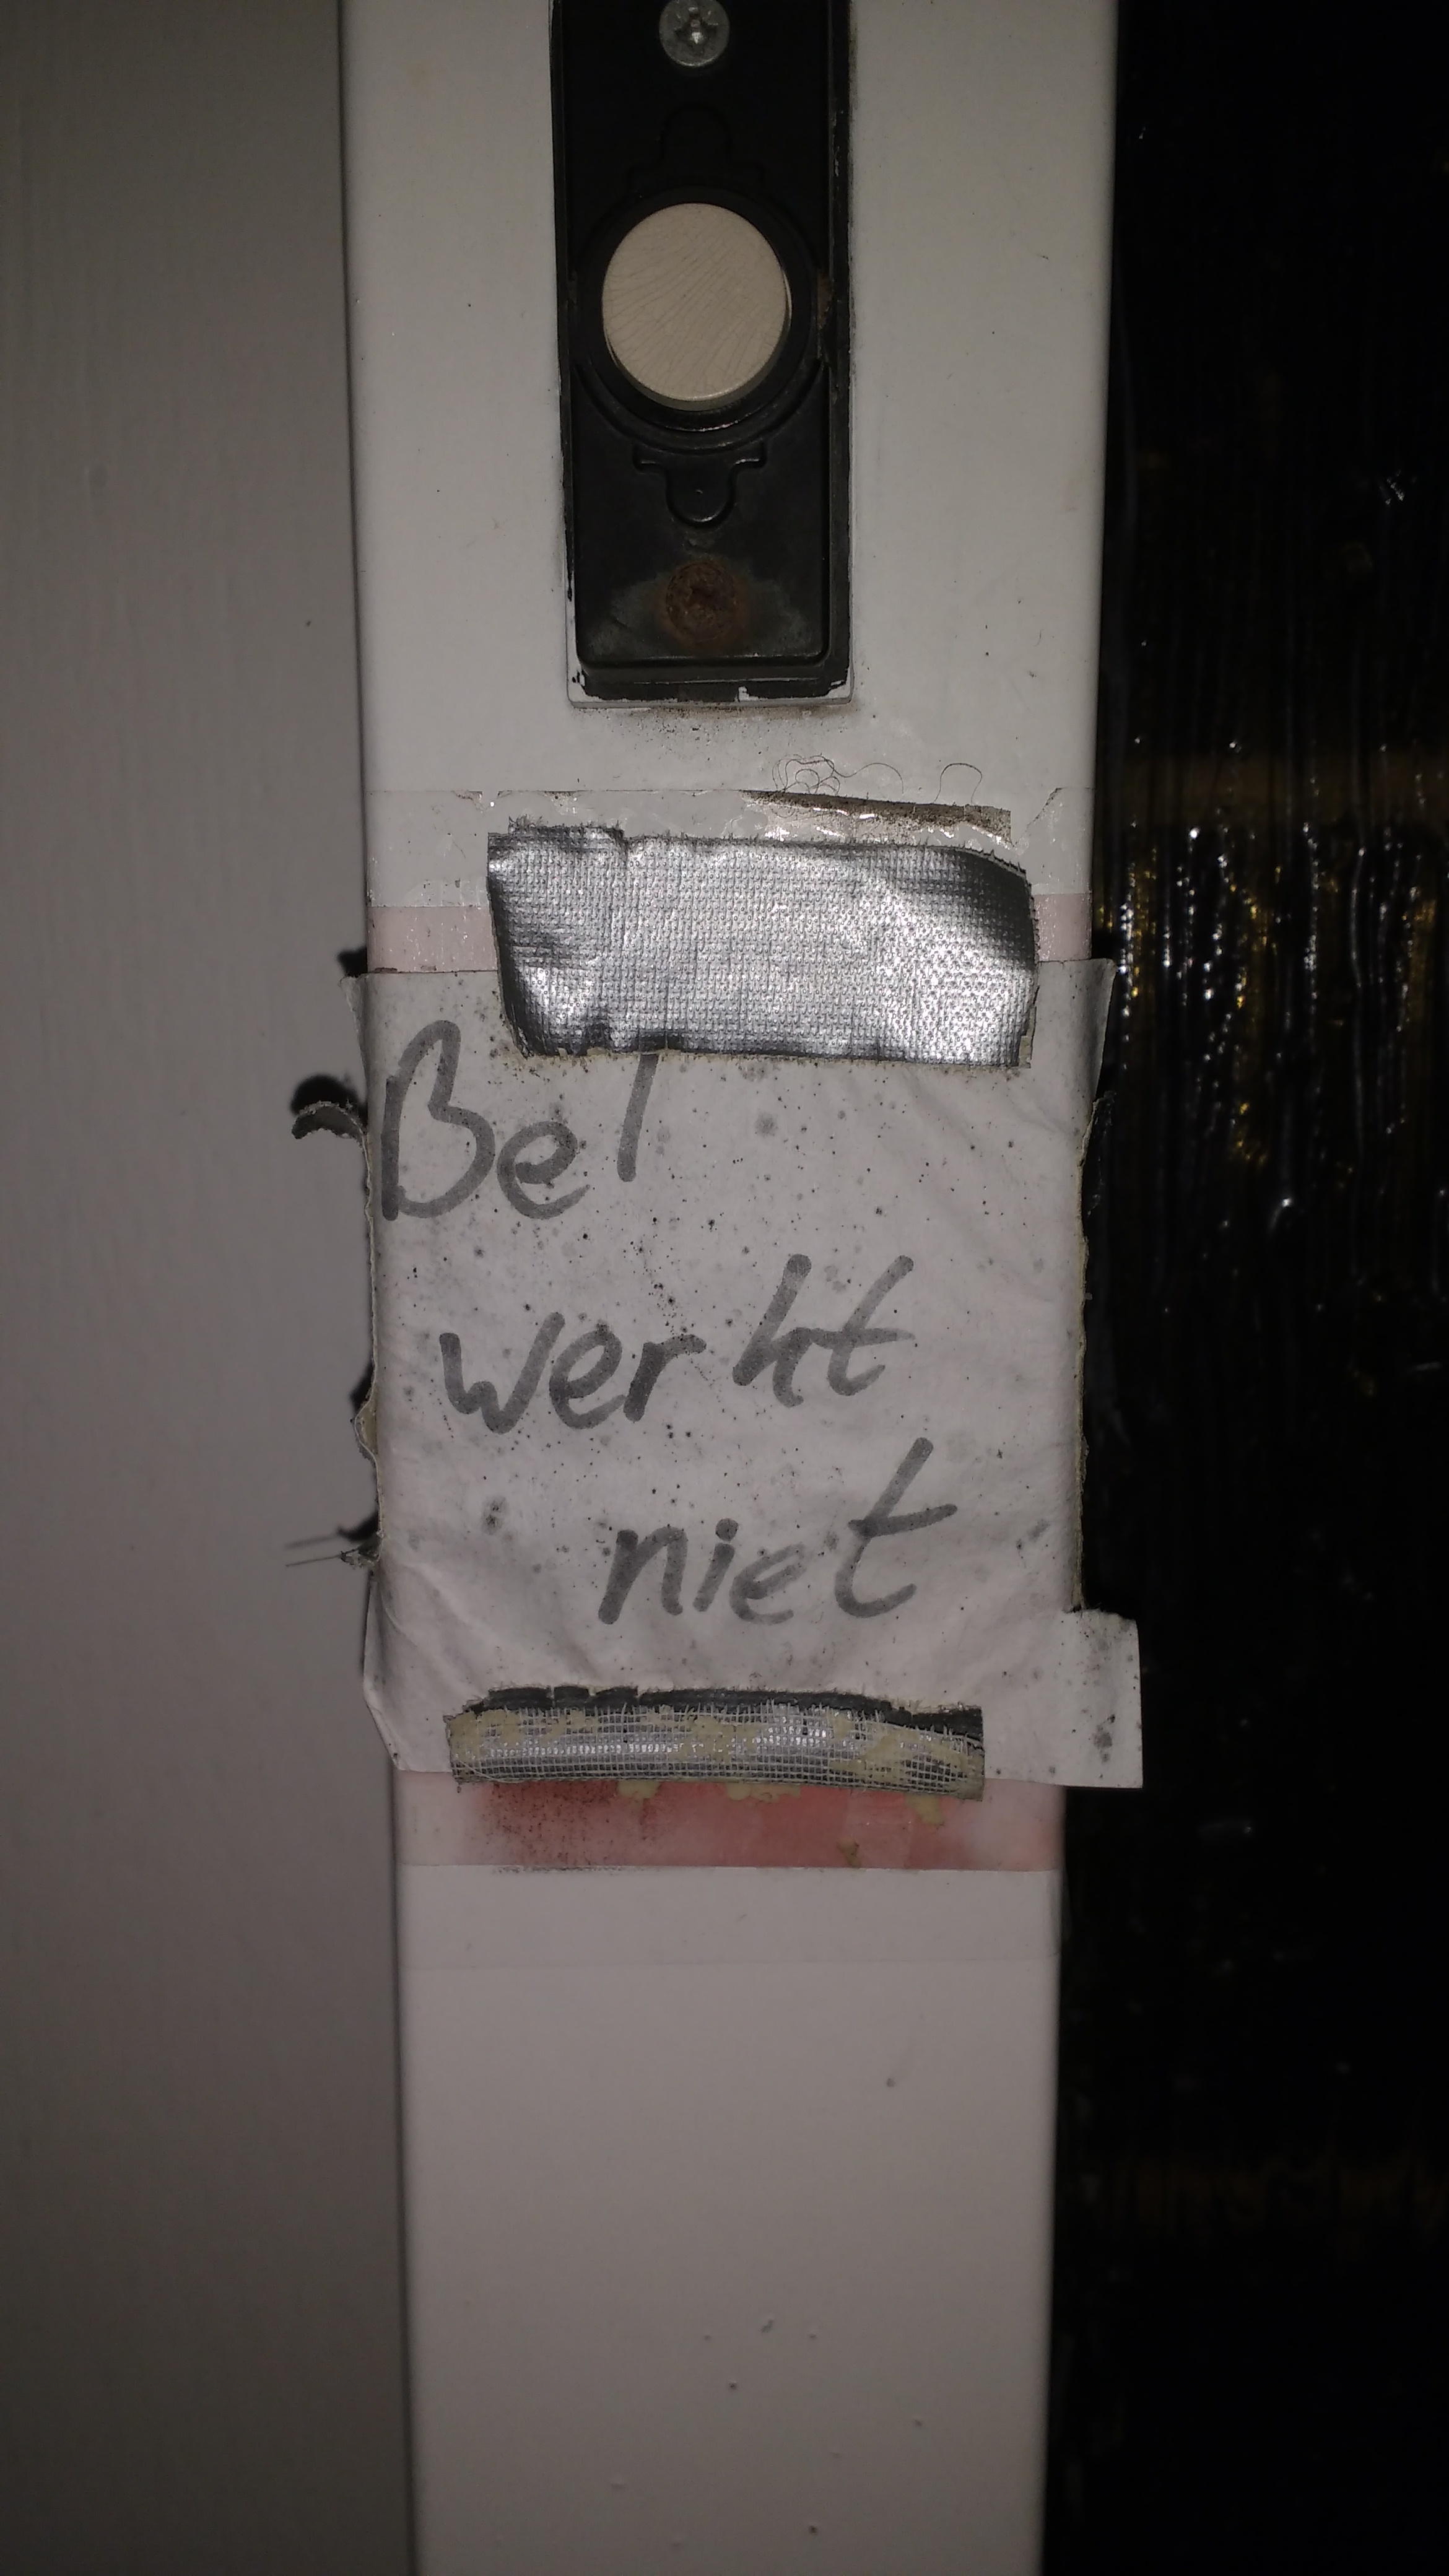 Bel
werkt
niet